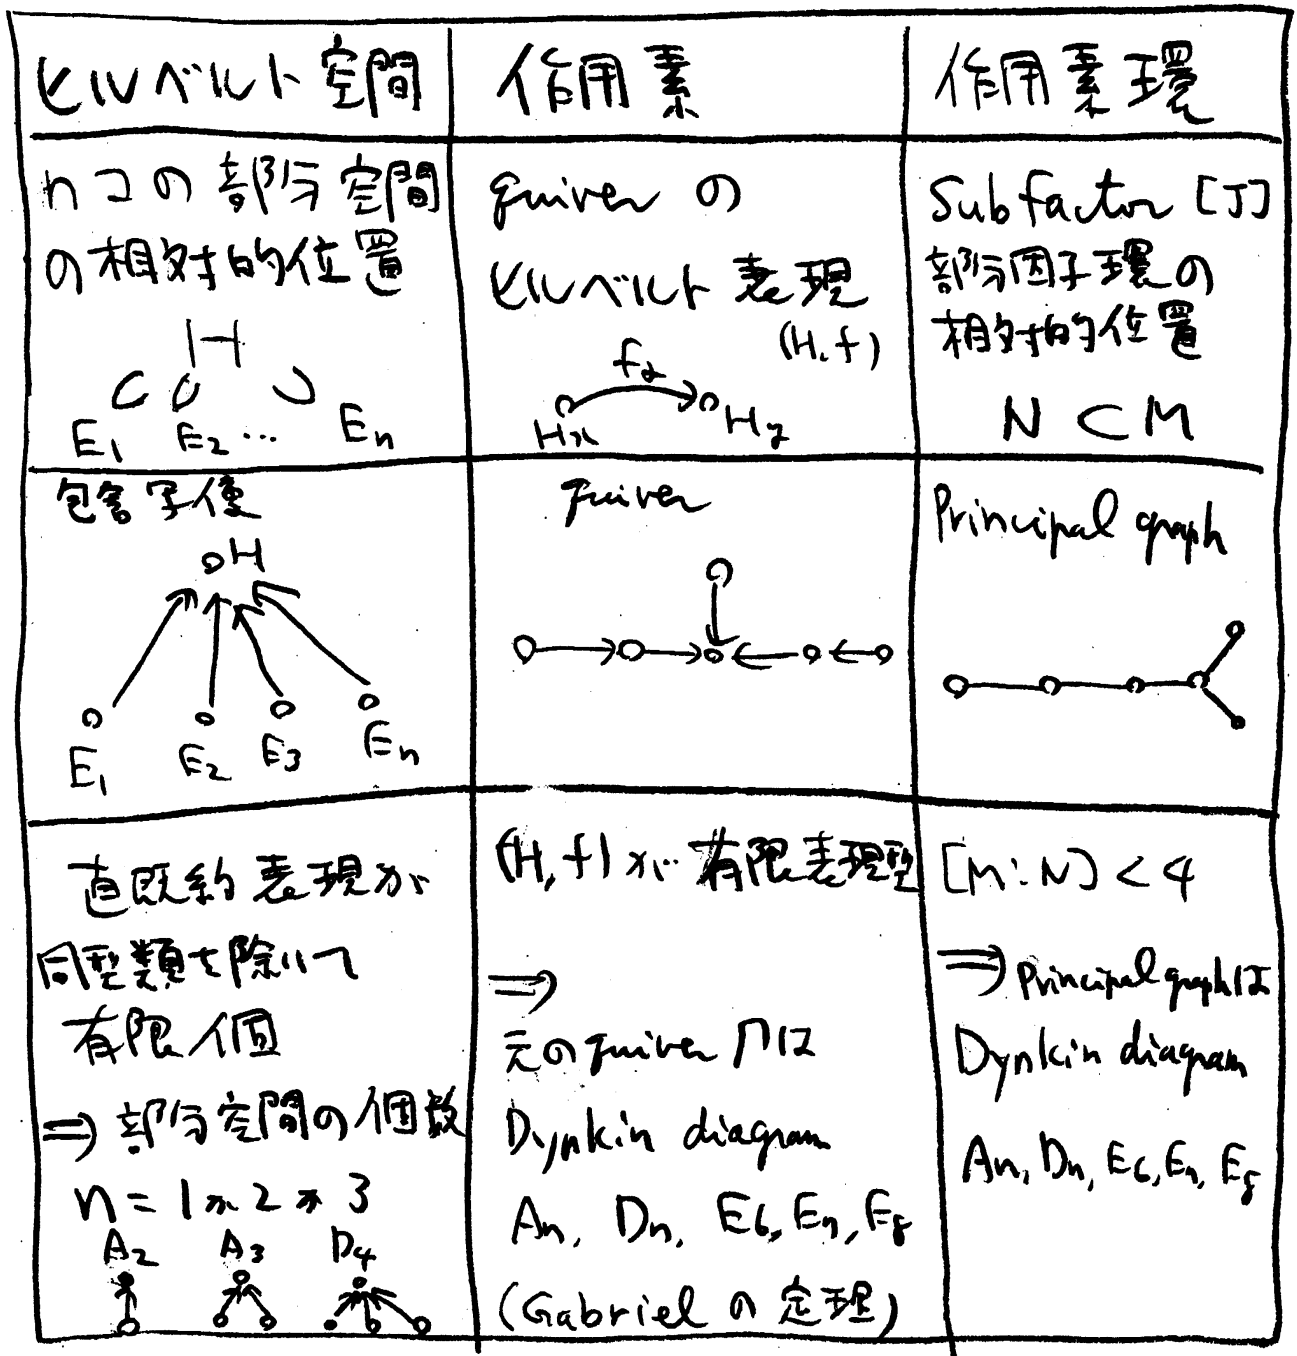 ヒルベルト空間
作用素
作用素環
nコの部分空間
の相対的位置
H
E1 E2 ... En
quiverの
ヒルベルト表現
(H, f)
fα
Hx Hy
Subfactor [J]
部分因子環の
相対的位置
N ⊂ M
包含写像
H
E1 E2 E3 En
quiver
Principal graph
直既約表現が
同型類を除いて
有限個
⇒部分空間の個数
n = 1か2か3
A2 A3 D4
(H, f)が有限表現型
⇒
元のquiver Γは
Dynkin diagram
An, Dn, E6, E7, E8
(Gabrielの定理)
[M:N] < 4
⇒Principal graphは
Dynkin diagram
An, Dn, E6, E7, E8